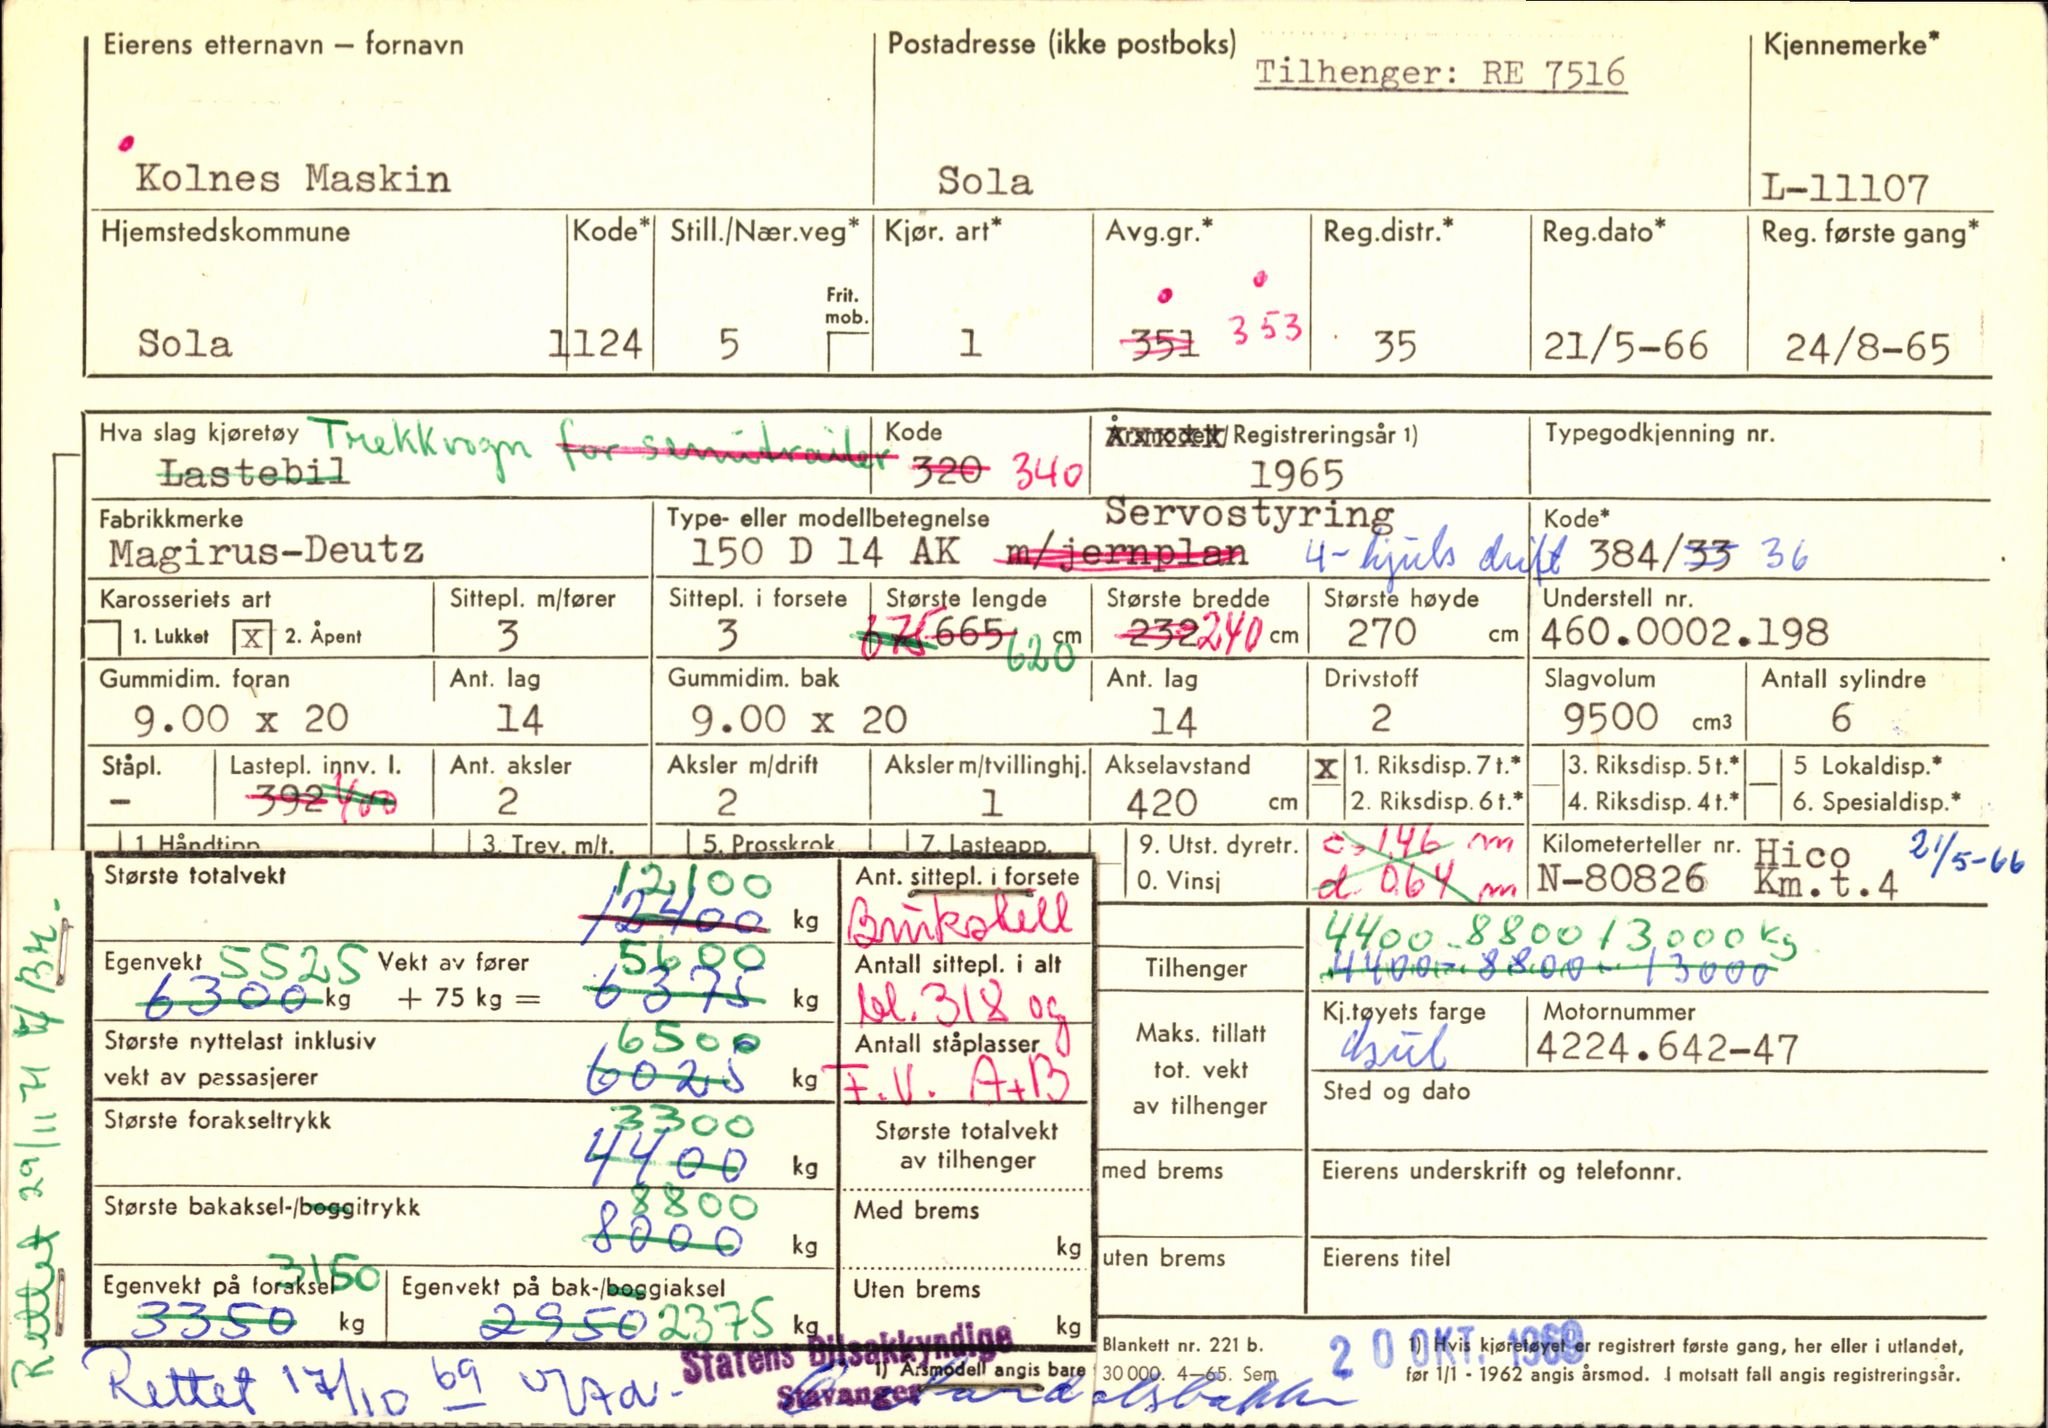 Eierens etternavn – fornavn
Postadresse (ikke postboks)
Tilhenger: RE 7516
Kjennemerke*
Kolnes Maskin
Sola
L-11107
Hjemstedskommune
Kode*
Still./Nær.veg*
Kjør. art*
Avg.gr.*
Reg.distr.*
Reg.dato*
Reg. første gang*
Frit. mob.
Sola
1124
5
1
351 353
35
21/5-66
24/8-65
Hva slag kjøretøy Trekkvogn for semitrailer
Lastebil
Kode
320 340
Årsmodell/Registreringsår 1)
1965
Typegodkjenning nr.
Fabrikkmerke
Magirus-Deutz
Type- eller modellbetegnelse
Servostyring
150 D 14 AK m/jernplan 4-hjuls drift
Kode*
384/33 36
Karosseriets art
1. Lukket X 2. Åpent
Sittepl. m/fører
3
Sittepl. i forsete
3
Største lengde
675 665 cm
620
Største bredde
232 240 cm
Største høyde
270 cm
Understell nr.
460.0002.198
Gummidim. foran
9.00 x 20
Ant. lag
14
Gummidim. bak
9.00 x 20
Ant. lag
14
Drivstoff
2
Slagvolum
9500 cm3
Antall sylindre
6
Ståpl.
–
Lastepl. innv. l.
392 400
Ant. aksler
2
Aksler m/drift
2
Aksler m/tvillinghj.
1
Akselavstand
420 cm
X 1. Riksdisp. 7 t.*
2. Riksdisp. 6 t.*
3. Riksdisp. 5 t.*
4. Riksdisp. 4 t.*
5 Lokaldisp.*
6. Spesialdisp.*
1. Håndtipp
3. Trev. m/t.
5. Prosskrok
7. Lasteapp.
9. Utst. dyretr.
0. Vinsj
c. 1.46 m
d. 0.64 m
Kilometerteller nr. Hico 21/5-66
N-80826 Km.t.4
Største totalvekt
12100
12400 kg
Ant. sittepl. i forsete
Brukstell
Egenvekt 5525 Vekt av fører 5600
6300 kg + 75 kg = 6375 kg
Antall sittepl. i alt
bl. 318 og
Største nyttelast inklusiv
vekt av passasjerer
6500
6025 kg
Antall ståplasser
F.V. A+B
Største forakseltrykk
3300
4400 kg
Største totalvekt
av tilhenger
Største bakaksel-/boggitrykk
8800
8000 kg
Med brems
kg
Egenvekt på foraksel
3150
3350 kg
Egenvekt på bak-/boggiaksel
2950 2375 kg
Uten brems
kg
Tilhenger
4400 - 8800 13000 kg
4400 - 8800 - 13000
Maks. tillatt
tot. vekt
av tilhenger
Kj.tøyets farge
Motornummer
4224.642-47
Sted og dato
med brems
Eierens underskrift og telefonnr.
uten brems
Eierens titel
Rettet 29/11 71
Rettet 17/10 69
Statens Bilsakkyndige
Stavanger
1) Årsmodell angis bare
Blankett nr. 221 b.
30 000. 4–65. Sem
20 OKT. 1969
1) Hvis kjøretøyet er registrert første gang, her eller i utlandet,
før 1/1 - 1962 angis årsmod. I motsatt fall angis registreringsår.